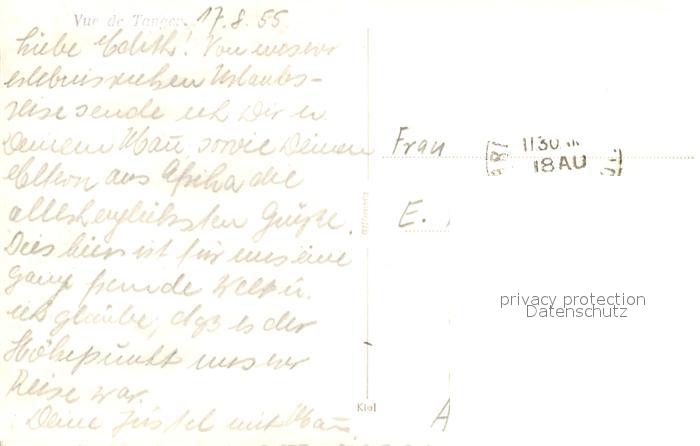 Vue de Tanger. 17.8.55.
Liebe Edith! Von unserer
erlebnisreichen Urlaubs-
reise sende ich Dir u.
Deinem Mañ sowie Deinen
Eltern aus Afrika die
allerherzlichsten Grüße.
Dies hier ist für uns eine
ganz fremde Welt u.
ich glaube, daß es der
Höhepunkt unserer
Reise war.
Deine mit Mañ.
Frau
E.
A
1130
18 AU
Kiel
privacy protection
Datenschutz